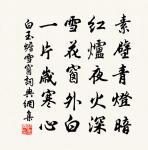 素壁青燈暗
紅爐夜火深
雪花窗外白
一片歲寒心
白玉蟾雪窗詞典網集